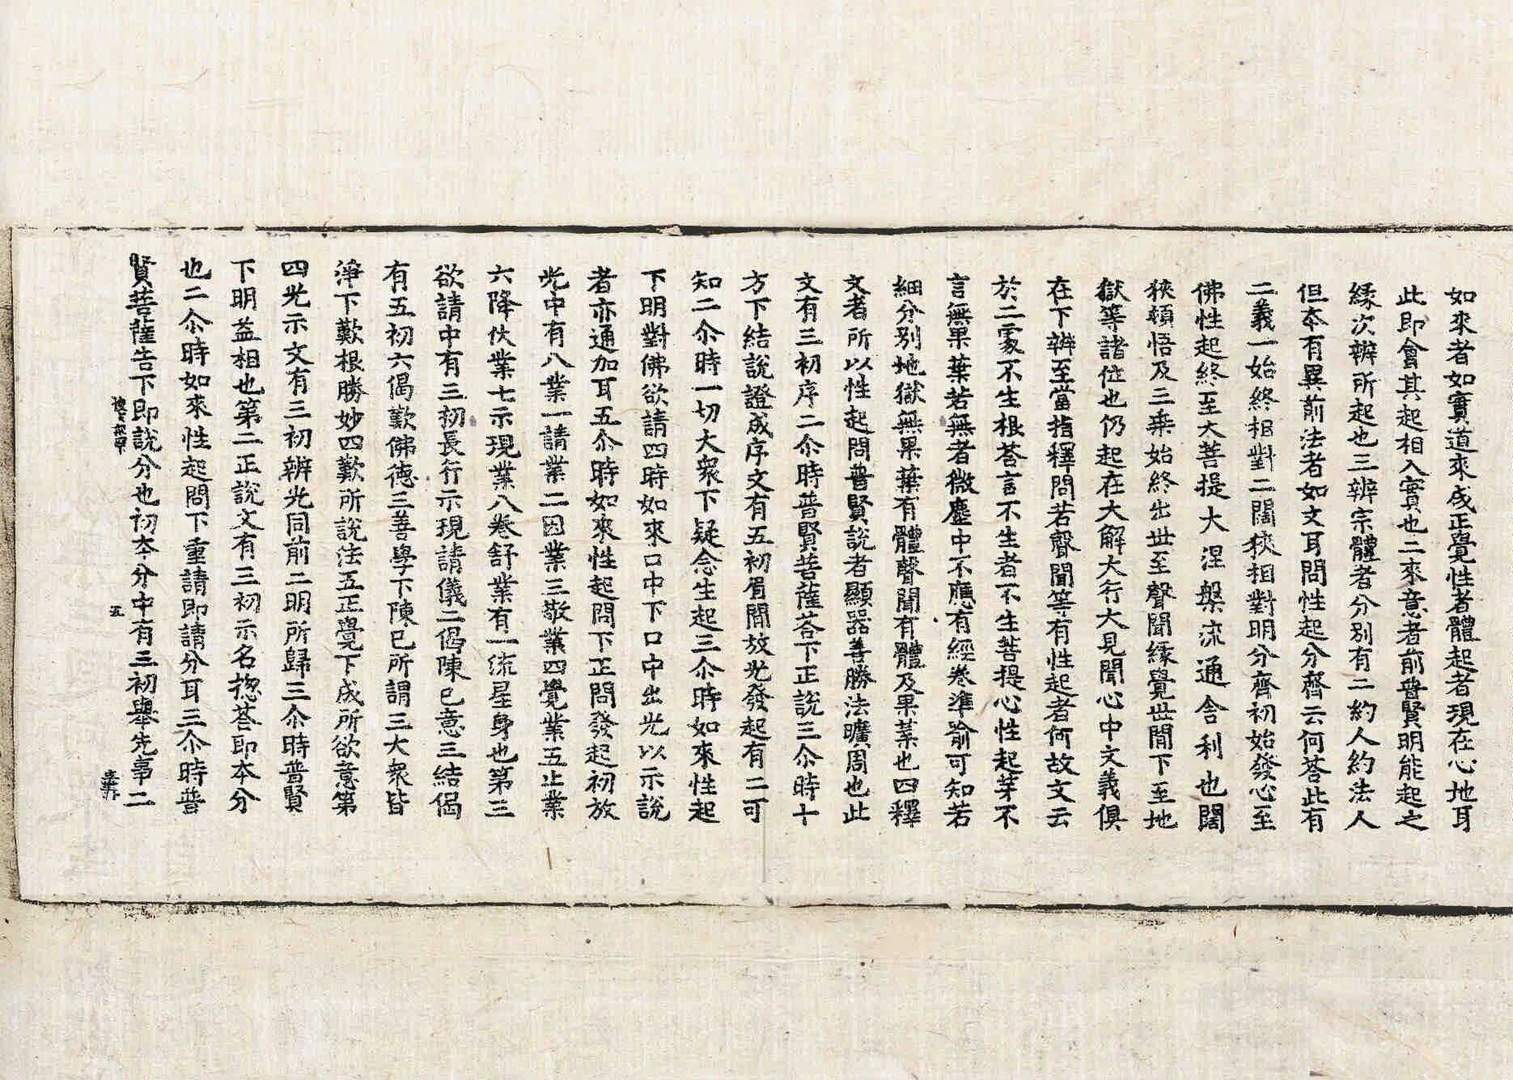 如來者如實道來成正覺性者體起者現在心地耳
此即會其起相入實也二來意者前普賢明能起之
緣次辨所起也三辨宗體者分別有二約人約法人
但夲有異前法者如文耳問性起分齊云何荅此有
二義一始終相對二闊狹相對明分齊初始發心至
佛性起終至大菩提大涅槃流通舍利也闊
狹頓悟及三乘始終出世至聲聞緣覺世間下至地
獄等諸位也仍起在大解大行大見聞心中文義俱
在下辨至當指釋問若聲聞等有性起者何故文云
於二䖏不生根荅言不生者不生菩提心性起芽不
言無果葉若無者微塵中不應有經卷準喻可知若
細分別地獄無果葉有體聲聞有體及果葉也四釋
文者所以性起問普賢說者顯器善勝法曠周也此
文有三初序二尒時普賢菩薩荅下正說三尒時十
方下結說證成序文有五初眉間放光發起有二可
知二尒時一切大衆下疑念生起三尒時如來性起
下明對佛欲請四時如來口中下口中出光以示說
者亦通加耳五尒時如來性起問下正問發起初放
光中有八業一請業二因業三敬業四覺業五止業
六降伏業七示現業八卷舒業有一流星身也第三
欲請中有三初長行示現請儀二偈陳已意三結偈
有五初六偈歎佛德三善學下陳已所謂三大衆皆
淨下歎根勝妙四歎所說法五正覺下成所欲意第
四光示文有三初辨光同前二明所歸三尒時普賢
下明益相也第二正說文有三初示名揔荅即夲分
也二尒時如來性起問下重請即請分耳三尒時普
賢菩薩告下即說分也初夲分中有三初舉先事二
五